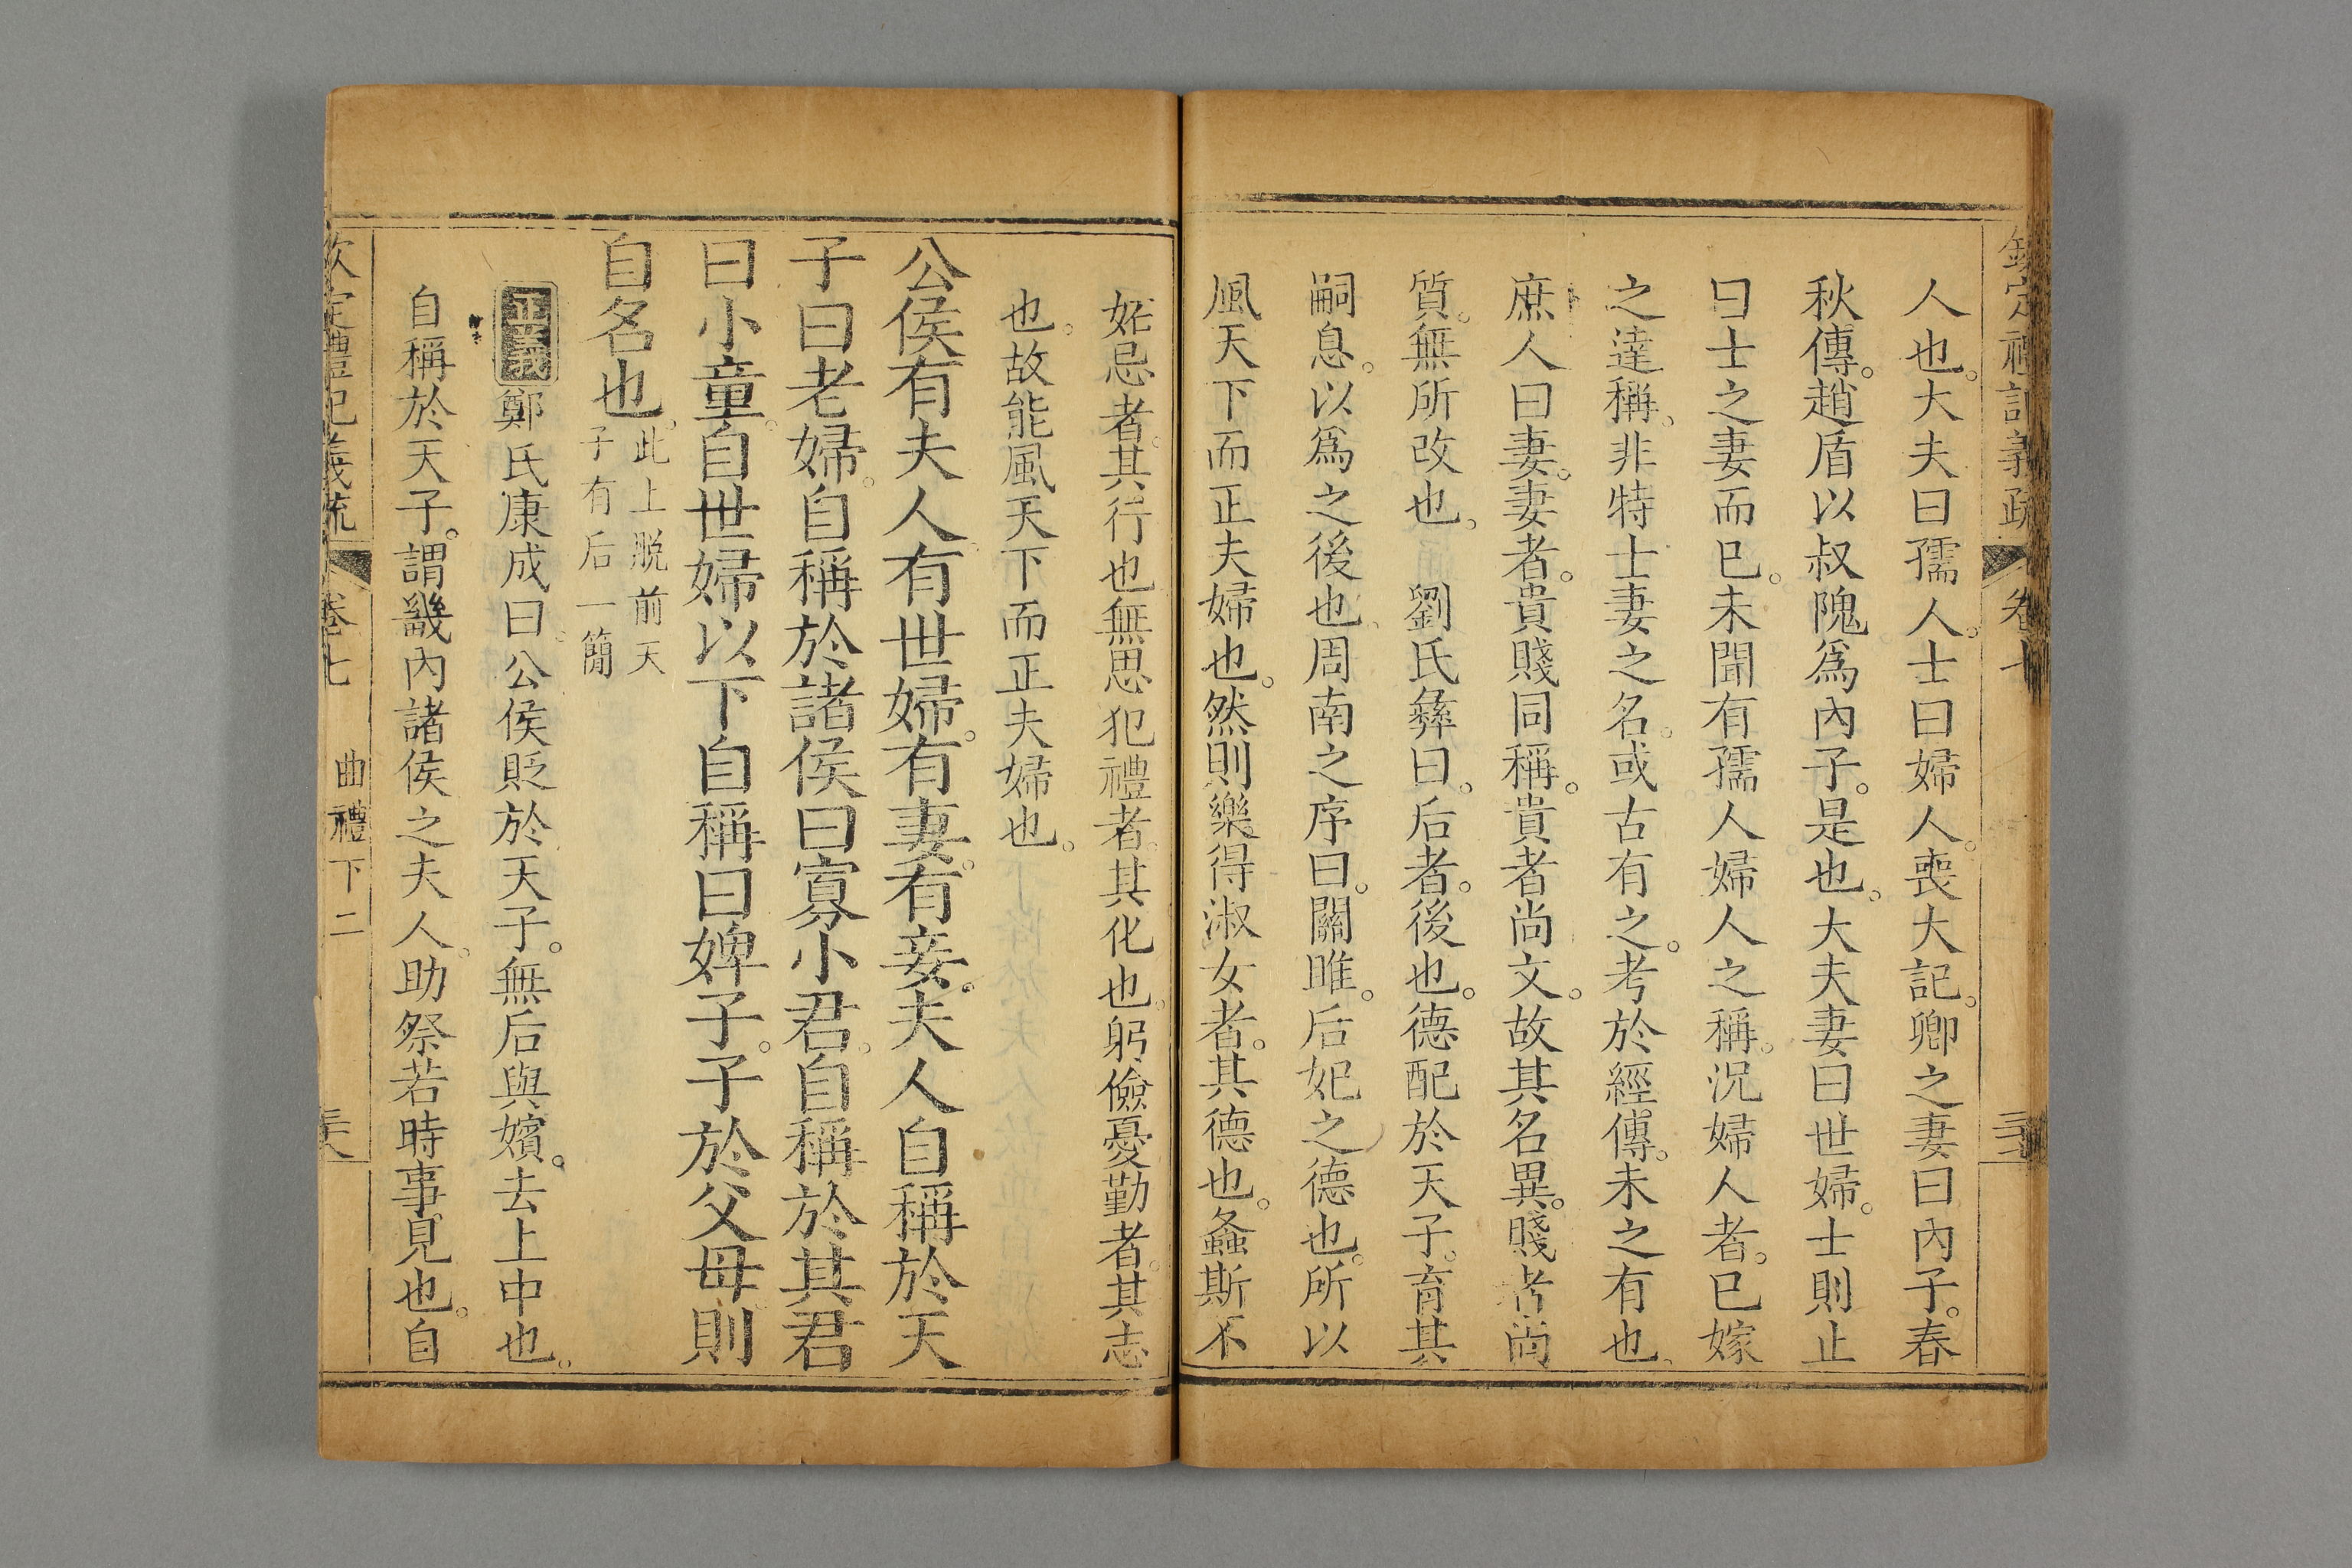 欽定禮記義疏 卷七
人也。大夫曰孺人。士曰婦人。喪大記。卿之妻曰內子。春
秋傳。趙盾以叔隗爲內子。是也。大夫妻曰世婦。士則止
曰士之妻而已。未聞有孺人婦人之稱。況婦人者。已嫁
之達稱。非特士妻之名。或古有之。考於經傳。未之有也。
庶人曰妻。妻者。貴賤同稱。貴者尚文。故其名異。賤者尚
質。無所改也。 劉氏彝曰。后者。後也。德配於天子。育其
嗣息。以爲之後也。周南之序曰。關雎。后妃之德也。所以
風天下而正夫婦也。然則樂得淑女者。其德也。螽斯不
妬忌者。其行也無思犯禮者。其化也。躬儉憂勤者。其志
也。故能風天下而正夫婦也。
公侯有夫人有世婦。有妻。有妾。夫人自稱於天
子曰老婦。自稱於諸侯曰寡小君。自稱於其君
曰小童。自世婦以下自稱曰婢子。子於父母則
自名也。
此上脫前天
子有后一簡
正義 鄭氏康成曰。公侯貶於天子。無后與嬪。去上中也。
自稱於天子。謂畿內諸侯之夫人。助祭若時事見也。自
欽定禮記義疏 卷七 曲禮下二